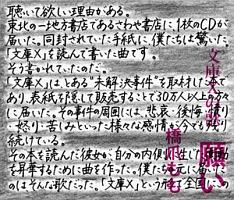 聴いて欲しい理由がある。
東北の一地方書店であるさわや書店に、1枚のCDが
届いた。同封されていた手紙に、僕たちは驚いた。
文庫Xを読んで書いた曲です。
そう書かれていたのだ。
「文庫X」とは“未解決事件”を取材した本で
あり、表紙を隠して販売することで30万人以上の方々
に届いた。その事件の周囲には、悲哀・後悔・憤り
・怒り・苦しみといった様々な感情が今でも残り
続けている。
その本を読んだ彼女が、自分の内側に生じた
を昇華するために曲を作った。僕たちに届いた
のはそんな歌だった。「文庫X」という形で全国
文庫Xの歌
願い
橋爪もも